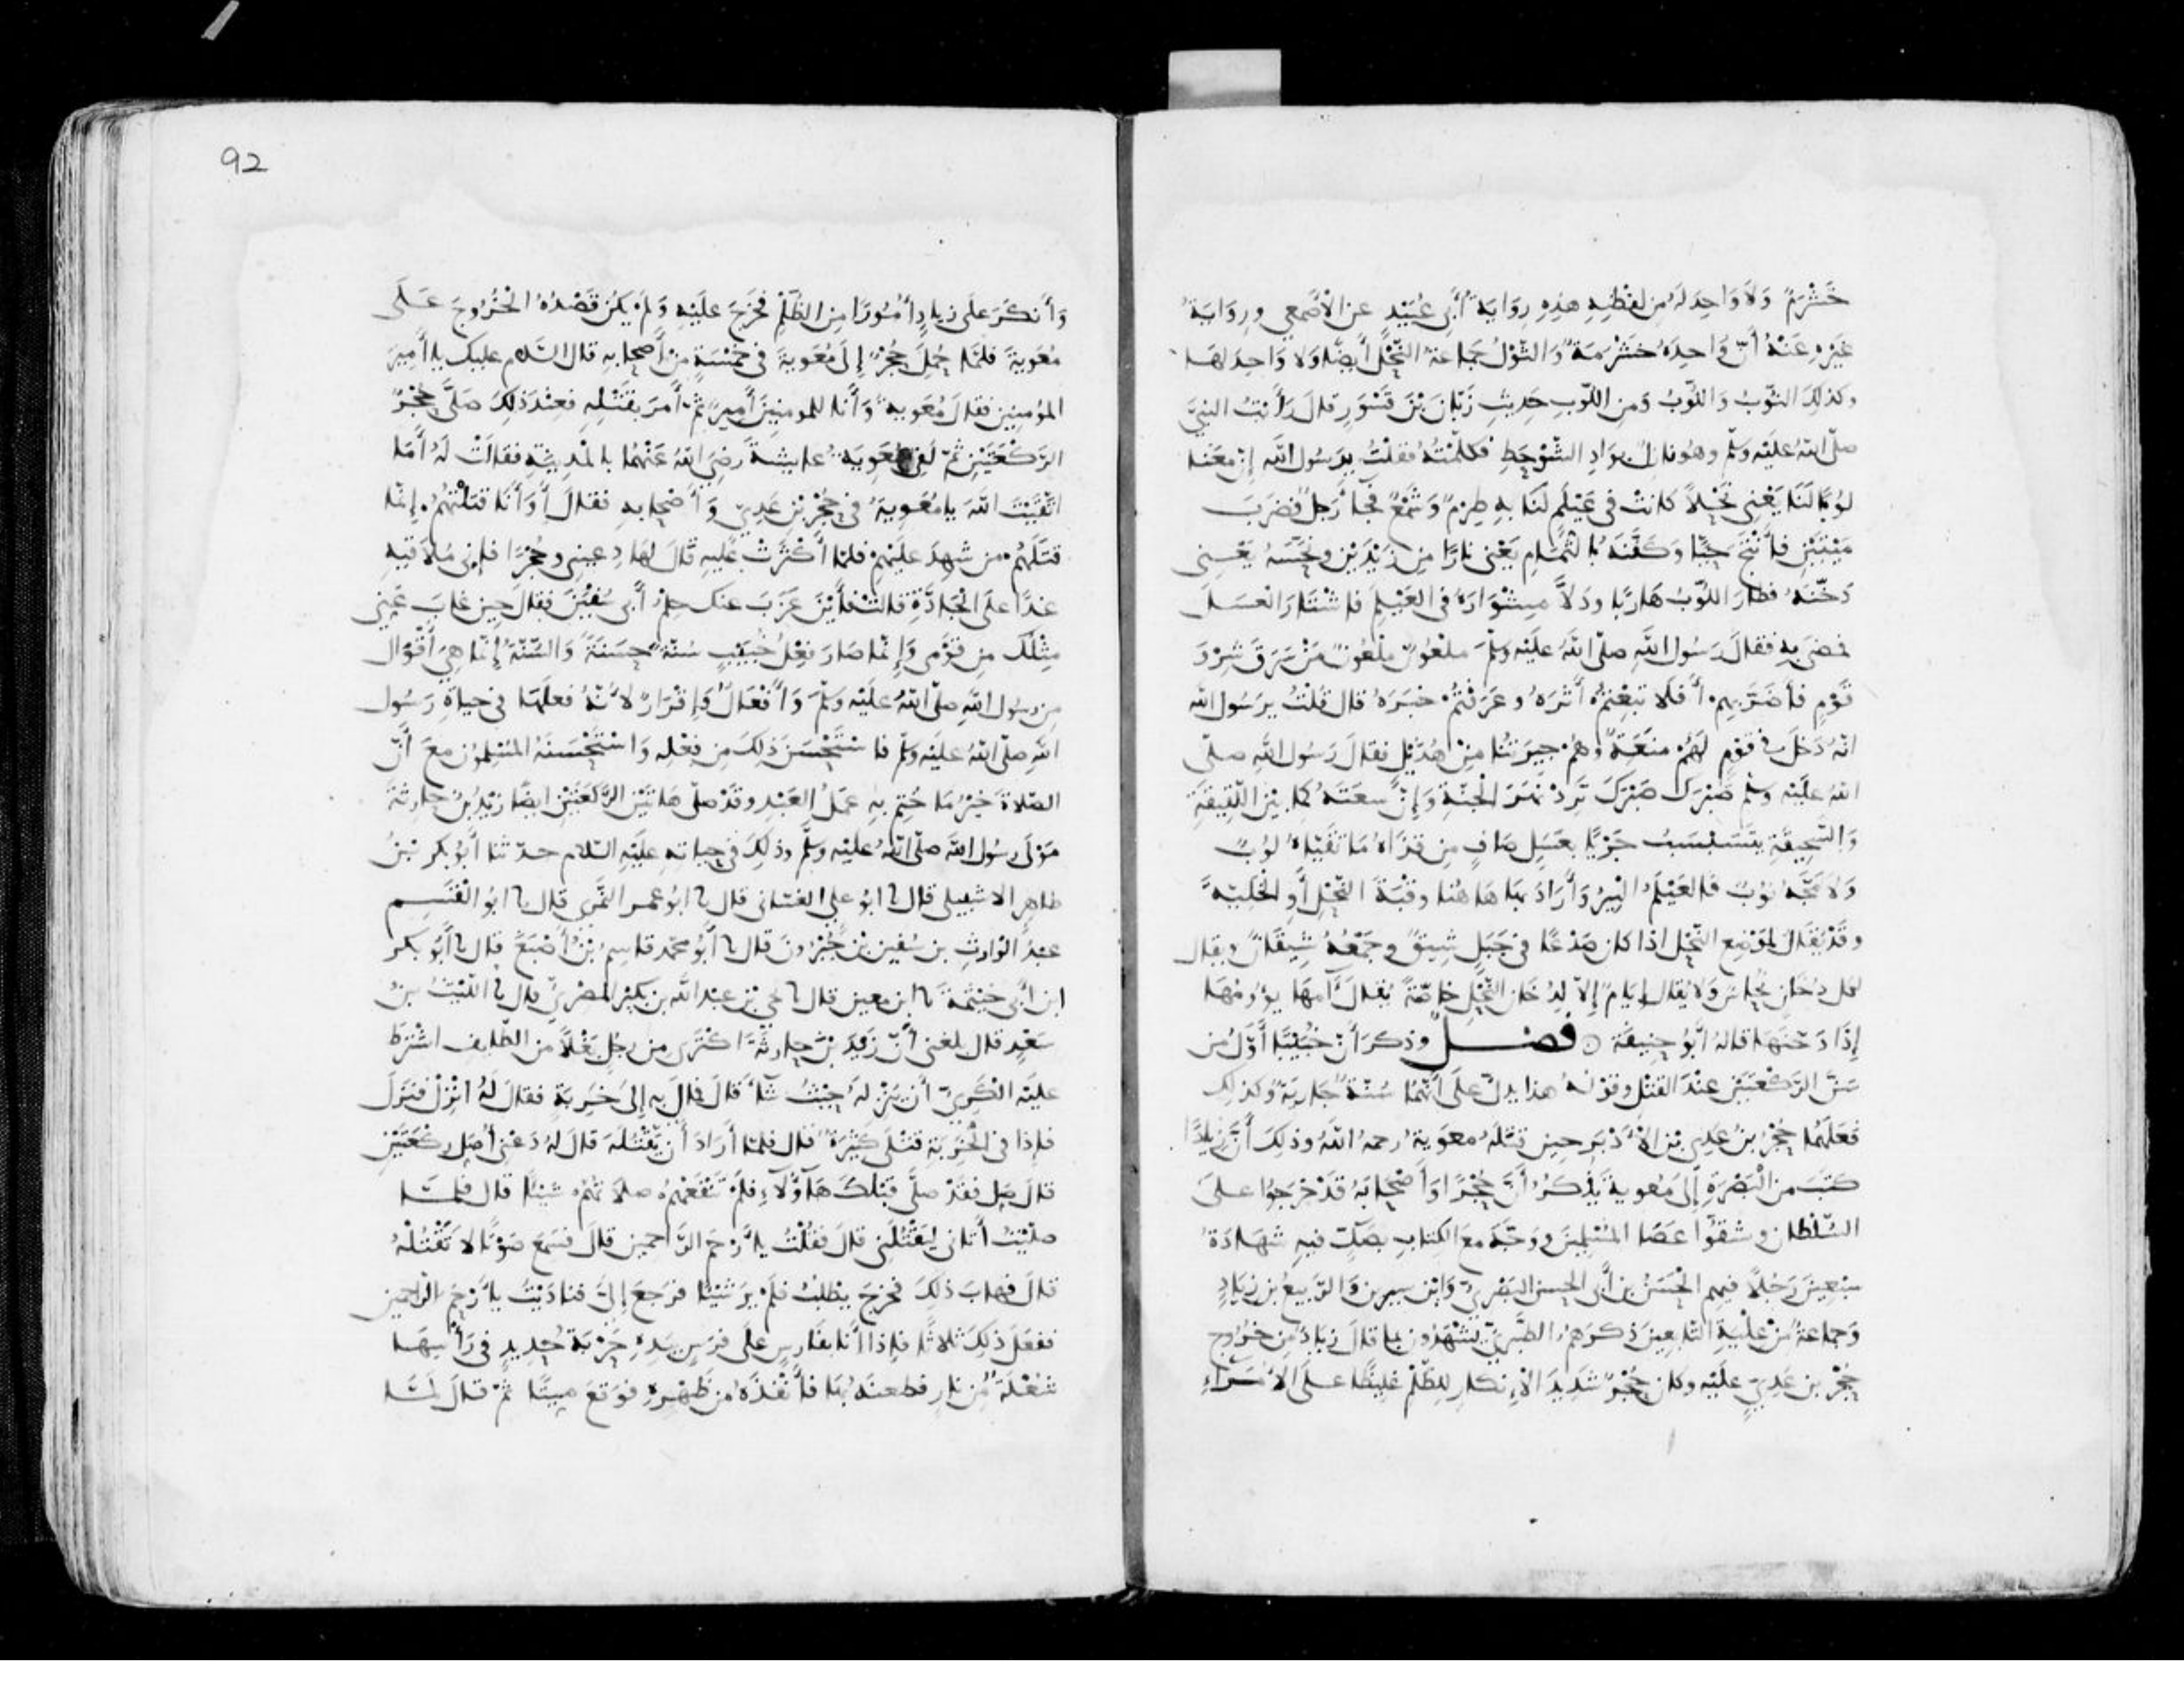 خَشْرَمٌ وَلَا وَاحِدَ لَهُ مِن لفظِهِ هذِهِ رِوَايَةُ أَبِي عُبَيْدٍ عن الأَصْمعي ورِوَايَةُ
غَيْرِهِ عَنْهُ أنّ وَاحِدَهُ خَشْرَمَةٌ وَالثَّوْلُ جَمَاعَةُ النَّحْلِ أَيضًا وَلا وَاحِدَ لهَا
وكذلِكَ النّوْبُ وَاللّوْبُ وَمِن اللّوبِ حَدِيثُ زَبّانَ بْنَ قَسْوَرٍ قالَ رَأَيْتُ النبيَّ
صلّى اللهُ عليْه وسلّم وهُو نازلٌ بوَادِ الشَّوْحَطِ فكلّمْتُهُ فقلْتُ يرَسُولَ الله إنّ معَنا
لوُبًا لنَا يَعْنِي نَحْلًا كَانتْ في عَيْلَمٍ لنَا بهِ طِرْمٌ وَشَمْعٌ فجَاءَ رَجلٌ فضَرَبَ
مَيْتَيْنِ فأَنْتَجَ حَيًّا وَكَفَّنَهُ بالثُّمَامِ يَعْني نارًا مِن زَنْدَيْنِ ونَحَّسَهُ يَعْنِي
دَخّنَهُ فطارَ اللّوْبُ هَارِبًا ودَلَّا مِشْوَارَهُ في العَيْلَمِ فاشْتَارَ العسَلَ
فمضَى بِهِ فقالَ رَسُول اللهِ صلّى اللهُ عليْه وسلّم ملعُونٌ ملعُونٌ مَنْ سَرَقَ شرْوَ
قَوْمٍ فأَضَرَّ بِهِم أَفَلَا تَبِعْتُمْ أَثَرَهُ وعرَفْتُمْ خبَرَهُ قال قُلْتُ يرَسُول الله
انّه دَخلَ في قوْمٍ لهُمْ منَعَةٌ وَهُم جِيرَتُنا مِنْ هُذَيْلٍ فقالَ رَسُول اللهِ صلّى
اللهُ عليْه وسلّم صَبْرَكَ صَبْرَكَ تَرِدْ نَهرَ الجنّةِ وَإنّ سعَتَهُ كما بيْن اللّقِيقَةِ
وَالسَّحِيقَةِ يتَسَبْسَبُ جَرْيًا بعَسَلٍ صَافٍ مِن قذَاهُ مَا تقَيّاهُ لوُبٌ
وَلا مَجّهُ نُوبٌ فالعَيْلَمُ البِيرُ وَأَرَادَ بهَا هَا هُنا وقْبَةَ النّحْلِ أو الخَلِيّةَ
وقَدْ يُقَالُ لموْضِعِ النّحْلِ اذَا كان صَدْعًا في جَبَلٍ شِيقٌ وجَمْعُهُ شِيقَانٌ ويقال
لكل دُخَانٍ نُحَاسٌ وَلا يُقال إيَامٌ إلّا لدُخَان النّحْلِ خاصّةً يُقال آمَهَا يَؤُومُهَا
إِذَا دَخّنَهَا قالهُ أَبُو حنِيفَةَ ۞ فصــل وذكرَ أنّ خُبَيْبًا أوّلُ مَن
سَنَّ الرّكْعتَيْنِ عنْدَ القتْلِ وقوْله هذا يدلّ على أَنّهُمَا سُنّةٌ جَارِيَةٌ وكذلِك
فعَلَهُما حُجْرُ بنُ عَدِي بْنِ الأَدْبَرِ حين قتَلَهُ معَوِيَةُ رحمهُ اللهُ وذلِكَ أَنّ زِيَادًا
كتبَ من البَصْرَةِ إلى مَعُوِيةَ يَذْكُرُ أَنَّ حُجْرًا وَأَصْحَابَهُ قَدْ خرَجُوا علَى
السّلْطان وشقّوا عصَا المسْلِمينَ ووَجّهَ معَ الكِتَابِ بصَكٍّ فيهِ شهَادَةُ
سبْعينَ رَجُلًا فيهِم الحْسَنُ بن أَبي الحسن البَصْرِيّ وَابْن سيرين وَالرّبيعُ بن زيَادٍ
وَجماعَةٌ مِنْ علْيَةِ التّابعينَ ذكرَهمُ الطّبَرِيّ يشْهَدُون بما قالَ زِيَادٌ مِن خرُوجِ
حُجْرِ بن عَدِيّ عليْه وكان حُجْرٌ شَديدَ الإنكارِ للظّلْمِ غليظًا علَى الأُمرَاءِ
92
وَأَنكَرَ على زيادٍ أُمُورًا مِن الظّلْمِ فخَرَجَ عليْهِ وَلم يَكُنْ قصْدُهُ الخرُوجَ عَلَى
مُعَوِيَةَ فلمّا حُمِلَ حُجْرٌ إلى مُعَوِيةَ في خمْسَةٍ مِن أصحابِهِ قال السّلام عليك يا أَمِيرَ
المؤمِنِين فقالَ مُعَوِيةُ وَأَنا للمومنينَ أَمِيرٌ ثُم أَمرَ بقَتْلِهِ فعنْدَ ذَلِكَ صلَّى حُجْرٌ
الرّكْعَتَيْنِ ثمّ لقِيَ مُعَوِيَةُ عايشَةَ رضيَ اللهُ عَنْهُمَا بالمدِينَةِ فقالَتْ لهُ أَمَا
اتّقَيْتَ اللهَ يا مُعَوِيَةُ في حُجْرِ بْن عَدِيّ وَأَصْحابِهِ فقالَ أَوَ أَنَا قتَلْتُهُمْ إنّما
قتَلَهُم من شهِدَ عليْهِمْ فلمّا أَكْثرَتْ عليهِ قالَ لها دعِيني وحُجْرًا فإنى مُلاقيهِ
غدًا على الجَادَّةِ قالتْ فأَيْنَ عَزَبَ عنك حِلْمُ أَبى سُفيْنَ فقالَ حين غابَ عَنّي
مِثْلُك من قوْمي وَإِنّما صَارَ فِعْلُ خُبَيْبٍ سُنّةً حسَنَةً وَالسُّنّةُ إنّما هِيَ أَقْوَال
مِن رسُول اللهِ صلّى اللهُ عليْه وسلّم وَأَفْعَالٌ وَإِقْرَارٌ لأَنّهُ فعلَهَا في حيَاةِ رَسُول
اللهِ صلّى اللهُ عليْه وسلّم فاسْتَحْسنَ ذلِكَ مِن فِعْلِهِ وَاسْتَحْسَنهُ المسْلِمُون معَ أَنّ
الصّلَاةَ خيْرُ مَا خُتِمَ بهِ عمَلُ العَبْدِ وقَدْ صلّى هَاتَيْن الرّكْعَتَيْنِ ايضًا زيْدُ بنُ حارِثَةَ
مَوْلَى رسُول الله صلّى اللهُ عليْه وسلّم وذلِكَ في حياتهِ عليْهِ السّلام حدّثنا أَبُو بكر بْنُ
طاهِر الاشبيلي قال نا ابُو علي الغسّاني قال نا ابوُ عمر النَّمَري قال نا ابو القسِم
عبْدُ الوَارِثِ بن سُفين بْن جُبْرُونَ قال نا أَبُو محمّد قاسِم بْنُ أَصْبَغَ قال نا أَبُو بكر
ابن أَبي خيْثَمَةَ نا ابن معين قال نا يحي بْن عبْد الله بن بُكيْر المصْرِيّ قال نا اللّيْثُ بنُ
سَعْدٍ قال بلغني أَنّ زَيْدَ بْنَ حارِثَةَ اكْتَرَى من رجُلٍ بغْلًا من الطّايِف اشْترَطَ
عليْه الكَرِيّ أَن يُنْزِلَهُ حيْثُ شَآءَ قالَ فمَالَ بِهِ إلى خرِبَةٍ فقالَ لهُ انْزِلْ فنزَلَ
فإذا في الخَرِبَةِ قتْلَى كثِيرَةٌ قال فلمّا أَرَادَ أَن يقْتُلَهُ قالَ لهُ دَعْني أُصَلّ ركْعَتَيْنِ
قالَ صَلّ فقَدْ صلَّى قبْلَكَ هَآؤُلَآءِ فلَمْ تَنْفَعْهُمْ صلَاتُهُم شيْئًا قال فلمّا
صلّيْتُ أَتَاني ليَقْتُلَني قالَ فقُلْتُ يا أَرْحَمَ الرّاحمين قالَ فسَمِعَ صَوْتًا لا تَقْتُلْهُ
قالَ فهَابَ ذلِكَ فخرَجَ يطْلُبُ فلَمْ يرَ شيْئًا فرَجَعَ إلَىَّ فنَادَيْتُ يا أَرْحَمَ الراحمين
ففَعَلَ ذلِكَ ثلاثًا فإِذا أَنا بفَارسٍ على فرَسٍ بيَدِهِ حَرْبَةُ حَدِيدٍ في رَأْسِهَا
شعْلَةٌ مِن نارٍ فطعنَهُ بهَا فأَنْفَذَهُ من ظَهْرِهِ فوَقَعَ ميِّتًا ثمّ قالَ لمّا